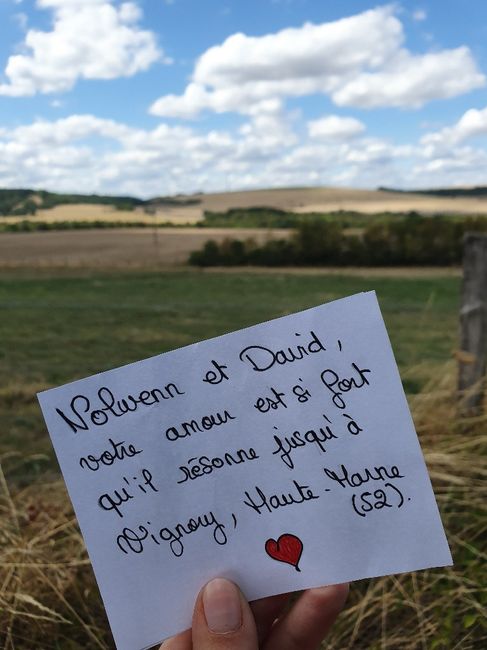 Nolwenn et David,
votre amour est si fort
qu'il résonne jusqu'à
Vignory, Haute-Marne
(52).